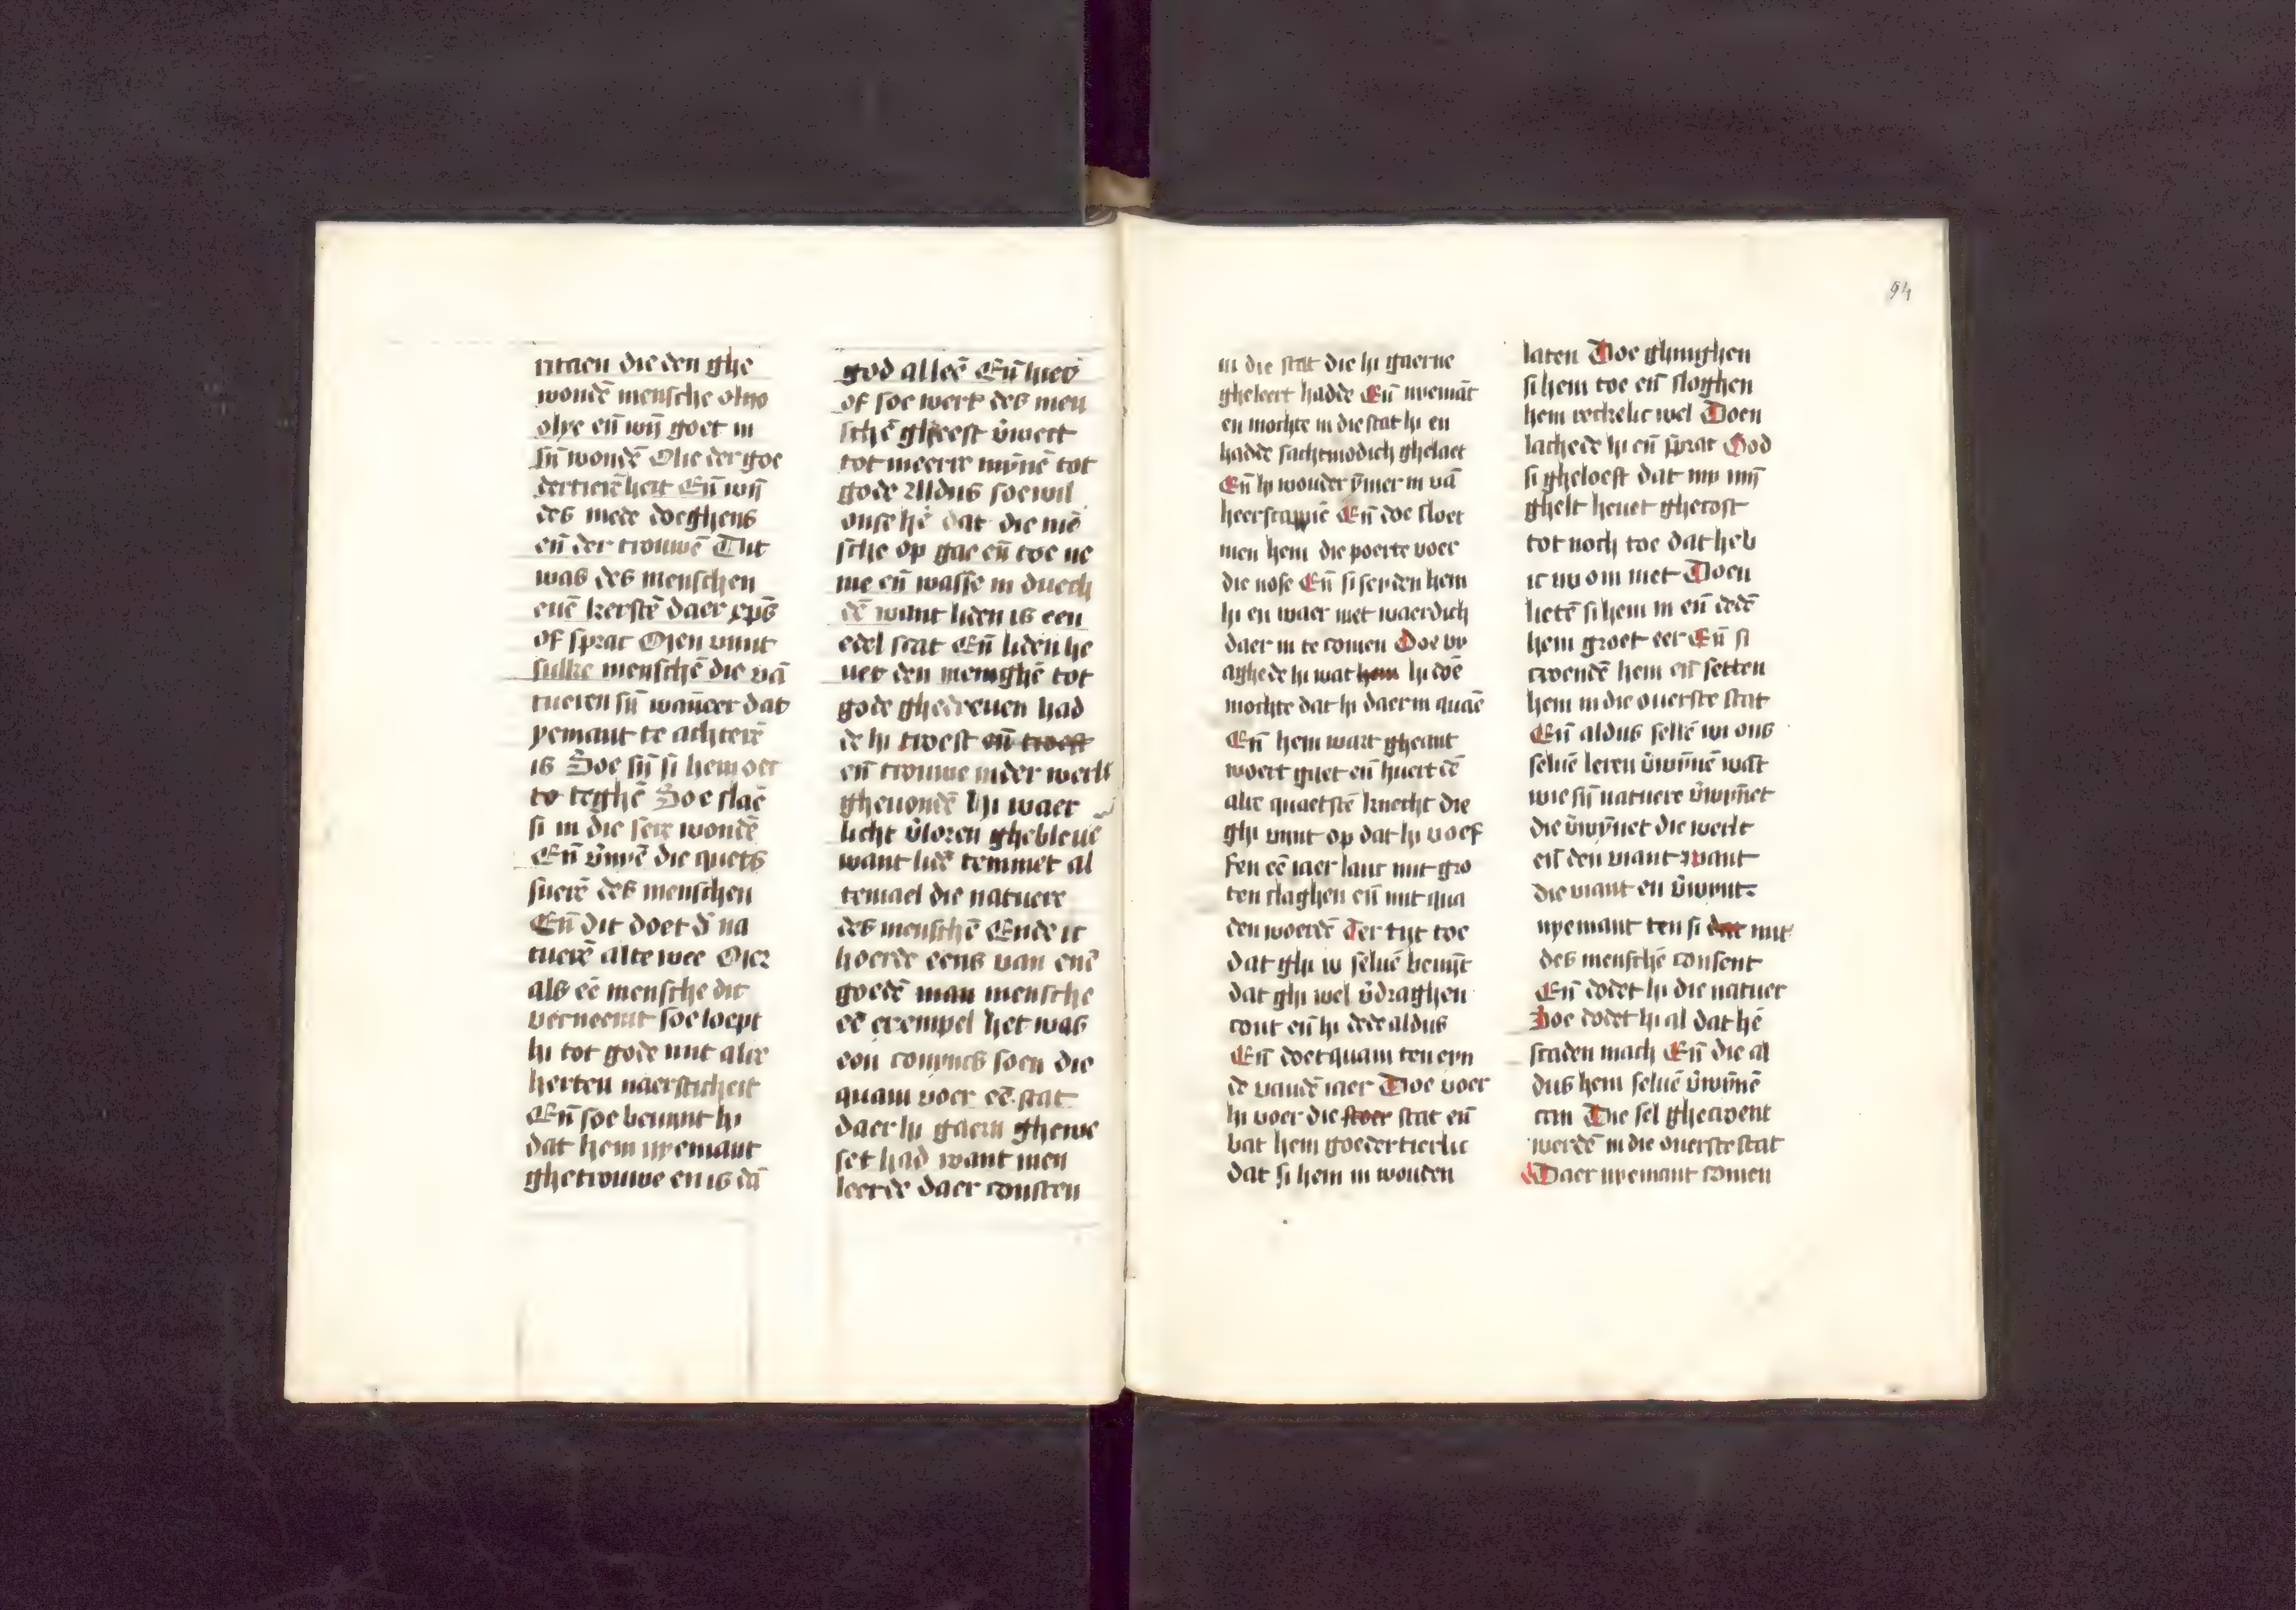 ritaen die den ghe
wondē mensche
olye eñ wijn goet in
sijn wondē Olie der goe
dertierēheit Eñ wijn
des mede doeghens
eñ der trouwē Dit
was des menschen
euē kerstē daer xp̄s
of sprac Men vint
sulke menschē die vā
tueren sijn wañeer dat
yemant te achterē
is Soe sijn si hem oec
to teghē Soe slaē
si in die seer wondē
Eñ die quets
suerē des menschen
Eñ dit doet d' na
tuerē alte wee Mer
als eē mensche dit
verneemt soe loept
hi tot gode mit alre
herten naersticheit
Eñ soe bevint hi
dat hem nyemant
ghetrouwe en is dā
god alleē Eñ hier
of soe wert des men
schē gheest v'wect
tot meerre mȳnē tot
gode Aldus soe wil
onse hē dat die mē
sche op gae eñ toe ne
me eñ wasse in duech
dē want liden is een
edel scat Eñ lidē he
uet den menighē tot
gode ghedreuen had
de hi troest eñ troest
eñ trouwe inder werlt
gheuondē hi waer
licht v'loren ghebleuē
want lidē temmet al
temael die natuere
des menschē Ende ic
hoerde eens van enē
goedē man mensche
eē exempel het was
eon conincs soen die
quam voer eē stat
daer hi gaern ghewe
set had want men
leerde daer consten
94
in die stat die hi gaerne
gheleert hadde Eñ nyemāt
en mochte in die stat hi en
hadde sachtmodich ghelaet
Eñ hy wonder ȳmer in vā
heerscappiē Eñ doe sloet
men hem die poerte voer
die nose Eñ si seyden hem
hi en waer niet waerdich
daer in te comen Doe vr
aghede hi wat hem hi doē
mochte dat hi daer in quaē
Eñ hem wart gheant
woert gaet eñ huert eē
alre quaetstē knecht die
ghi vint op dat hi u oef
fen eē iaer lanc mit gro
ten slaghen eñ mit qua
den woerdē Ter tijt toe
dat ghi u seluē bevijt
dat ghi wel v'draghen
cont eñ hi dede aldus
Eñ doet quam ten eyn
de vandē iaer Doe voer
hi voer die stoer stat eñ
bat hem goedertierlic
dat si hem in wouden
laten Doe ghinghen
si hem toe eñ sloghen
hem reckelic wel Doen
lachede hi eñ sprac God
si gheloeft dat my mijn
ghelt heuet ghecost
tot noch toe dat heb
ic nu om niet Doen
lietē si hem in eñ dedē
hem groet eer Eñ si
croendē hem eñ setten
hem in die ouerste stat
Eñ aldus sellē wi ons
seluē leren v'wȳnē wāt
wie sijn natuere v'wȳnet
die v'wȳnet die werlt
eñ den viant want
die viant en v'wint
nyemant ten si dat mit
des menschē consent
Eñ dodet hi die natuer
Soe dodet hi al dat hē
scaden mach Eñ die al
dus hem seluē v'wȳnē
can Die sel ghecroent
werdē in die ouerste stat
Daer nyemant comen